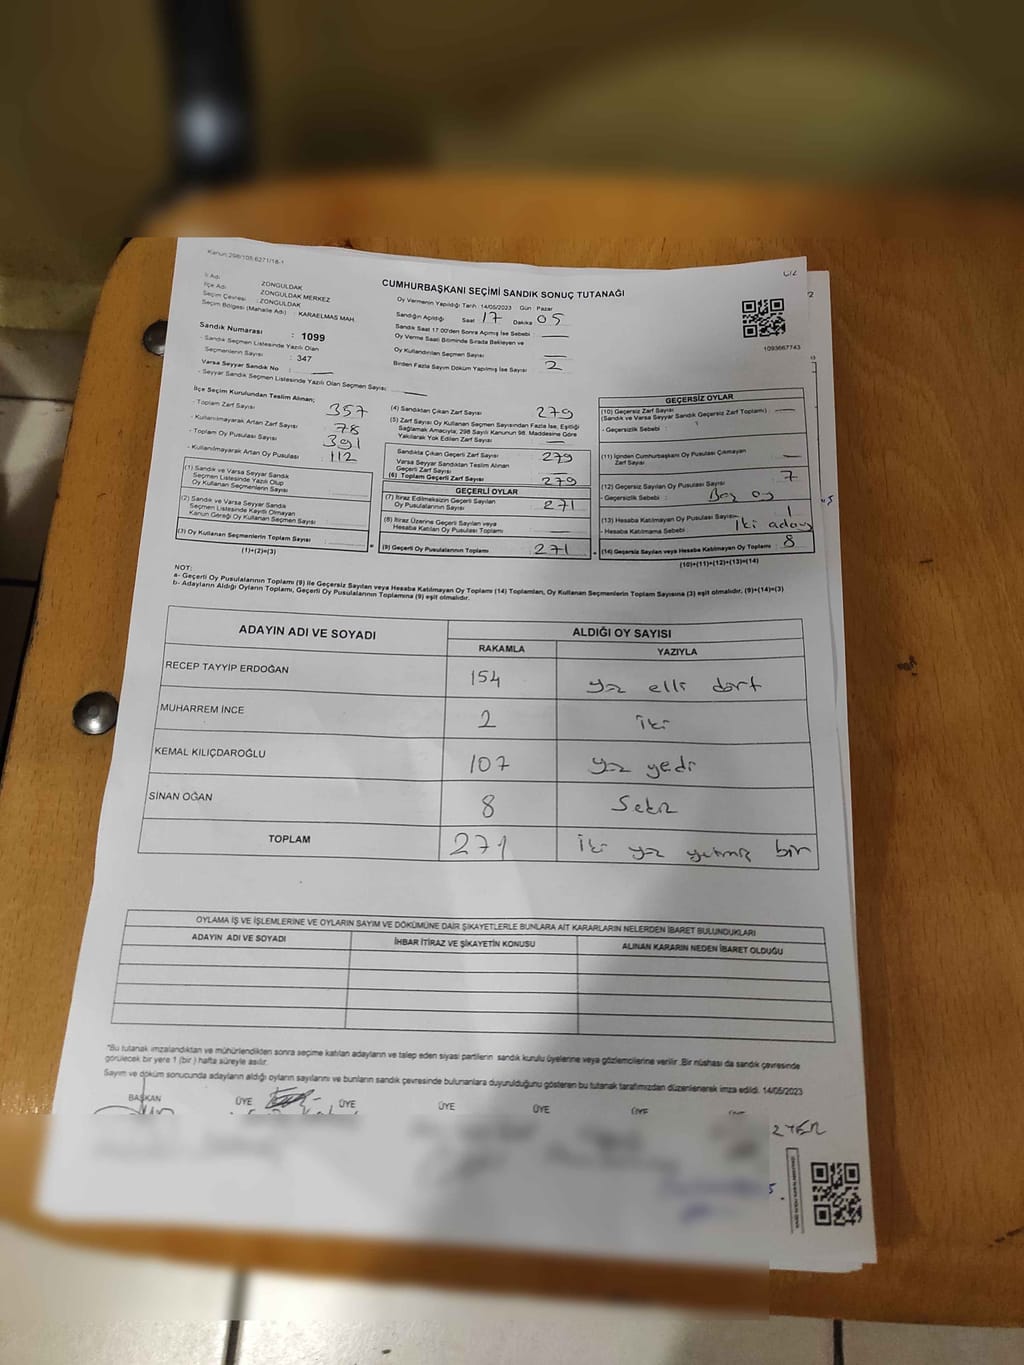 Kanun:298/105;6271/18-1
İl Adı ZONGULDAK
İlçe Adı ZONGULDAK MERKEZ
Seçim Çevresi : ZONGULDAK
Seçim Bölgesi (Mahalle Adı) : KARAELMAS MAH.
CUMHURBAŞKANI SEÇİMİ SANDIK SONUÇ TUTANAĞI
Oy Vermenin Yapıldığı Tarih :14/05/2023 Gün : Pazar
Sandığın Açıldığı Saat 17 Dakika 05
Sandık Saat 17:00'den Sonra Açılmış İse Sebebi :
Oy Verme Saati Bitiminde Sırada Bekleyen ve
Oy Kullandırılan Seçmen Sayısı
Birden Fazla Sayım Döküm Yapılmış İse Sayısı 2
1093667743
Sandık Numarası : 1099
- Sandık Seçmen Listesinde Yazılı Olan
Seçmenlerin Sayısı : 347
Varsa Seyyar Sandık No :
- Seyyar Sandık Seçmen Listesinde Yazılı Olan Seçmen Sayısı :
İlçe Seçim Kurulundan Teslim Alınan;
- Toplam Zarf Sayısı 357
- Kullanılmayarak Artan Zarf Sayısı 78
- Toplam Oy Pusulası Sayısı 391
- Kullanılmayarak Artan Oy Pusulası 112
(1) Sandık ve Varsa Seyyar Sandık
Seçmen Listesinde Yazılı Olup
Oy Kullanan Seçmenlerin Sayısı :
(2) Sandık ve Varsa Seyyar Sandık
Seçmen Listesinde Kayıtlı Olmayan
Kanun Gereği Oy Kullanan Seçmen Sayısı :
(3) Oy Kullanan Seçmenlerin Toplam Sayısı :
(1)+(2)=(3)
(4) Sandıktan Çıkan Zarf Sayısı 279
(5) Zarf Sayısı Oy Kullanan Seçmen Sayısından Fazla İse, Eşitliği
Sağlamak Amacıyla; 298 Sayılı Kanunun 98. Maddesine Göre
Yakılarak Yok Edilen Zarf Sayısı
Sandıkta Çıkan Geçerli Zarf Sayısı 279
Varsa Seyyar Sandıktan Teslim Alınan
Geçerli Zarf Sayısı
(6) Toplam Geçerli Zarf Sayısı 279
GEÇERLİ OYLAR
(7) İtiraz Edilmeksizin Geçerli Sayılan
Oy Pusulalarının Sayısı 271
(8) İtiraz Üzerine Geçerli Sayılan veya
Hesaba Katılan Oy Pusulası Toplamı
(9) Geçerli Oy Pusulalarının Toplamı 271
GEÇERSİZ OYLAR
(10) Geçersiz Zarf Sayısı
(Sandık ve Varsa Seyyar Sandık Geçersiz Zarf Toplamı) :
- Geçersizlik Sebebi :
(11) İçinden Cumhurbaşkanı Oy Pusulası Çıkmayan
Zarf Sayısı
(12) Geçersiz Sayılan Oy Pusulası Sayısı 7
- Geçersizlik Sebebi : Boş oy
(13) Hesaba Katılmayan Oy Pusulası Sayısı 1
- Hesaba Katılmama Sebebi : iki aday
(14) Geçersiz Sayılan veya Hesaba Katılmayan Oy Toplamı : 8
(10)+(11)+(12)+(13)=(14)
NOT:
a- Geçerli Oy Pusulalarının Toplamı (9) ile Geçersiz Sayılan veya Hesaba Katılmayan Oy Toplamı (14) Toplamları, Oy Kullanan Seçmenlerin Toplam Sayısına (3) eşit olmalıdır, (9)+(14)=(3)
b- Adayların Aldığı Oyların Toplamı, Geçerli Oy Pusulalarının Toplamına (9) eşit olmalıdır.
ADAYIN ADI VE SOYADI ALDIĞI OY SAYISI
RAKAMLA YAZIYLA
RECEP TAYYİP ERDOĞAN 154 yüz elli dört
MUHARREM İNCE 2 iki
KEMAL KILIÇDAROĞLU 107 yüz yedi
SİNAN OĞAN 8 Sekiz
TOPLAM 271 iki yüz yetmiş bir
OYLAMA İŞ VE İŞLEMLERİNE VE OYLARIN SAYIM VE DÖKÜMÜNE DAİR ŞİKAYETLERLE BUNLARA AİT KARARLARIN NELERDEN İBARET BULUNDUKLARI
ADAYIN ADI VE SOYADI İHBAR İTİRAZ VE ŞİKAYETİN KONUSU ALINAN KARARIN NEDEN İBARET OLDUĞU
*Bu tutanak imzalandıktan ve mühürlendikten sonra seçime katılan adayların ve talep eden siyasi partilerin sandık kurulu üyelerine veya gözlemcilerine verilir .Bir nüshası da sandık çevresinde
görülecek bir yere 1 (bir ) hafta süreyle asılır.
Sayım ve döküm sonucunda adayların aldığı oyların sayılarını ve bunların sandık çevresinde bulunanlara duyurulduğunu gösteren bu tutanak tarafımızdan düzenlenerek imza edildi. 14/05/2023
BAŞKAN ÜYE ÜYE ÜYE ÜYE ÜYE